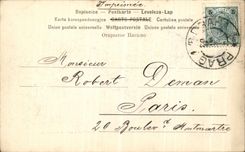 Imprimée
Dopisnice - Postkarte - Levelező-Lap
Karta korespondencyjna CARTE POSTALE Cartolina postale
Union postale universelle Weltpostverein Unione postale universale
Открытое Письмо
PRAG
Monsieur
Robert Deman
Paris.
20 Boulevd Montmartre